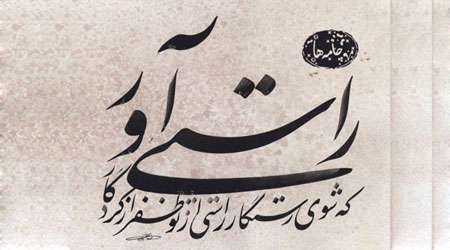 راستی آور
که شوی رستگار راستی از تو ظفر از کردگار